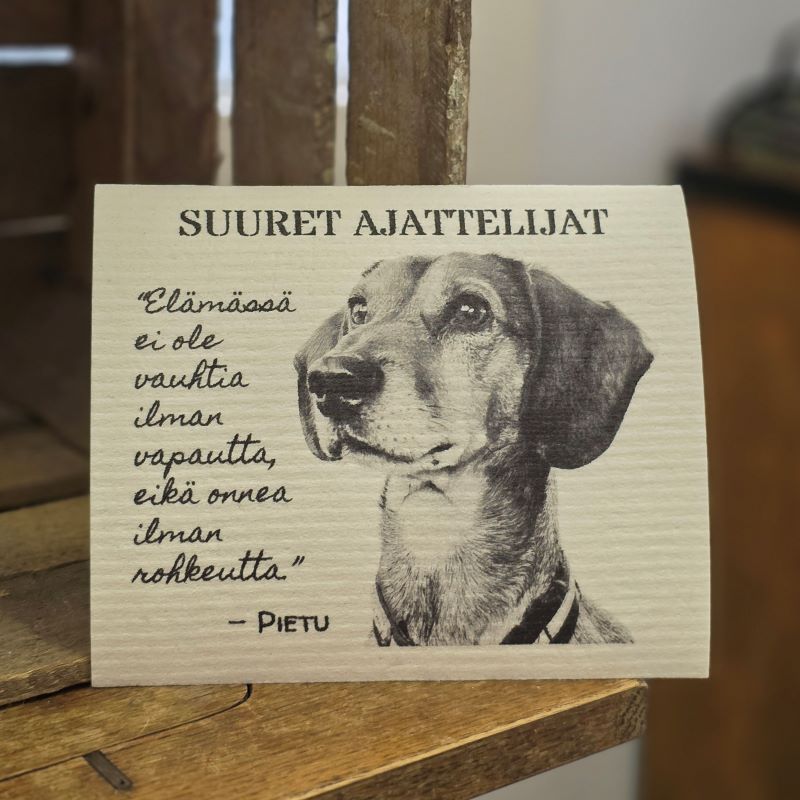 SUURET AJATTELIJAT
"Elämässä
ei ole
vauhtia
ilman
vapautta,
eikä onnea
ilman
rohkeutta."
– PIETU